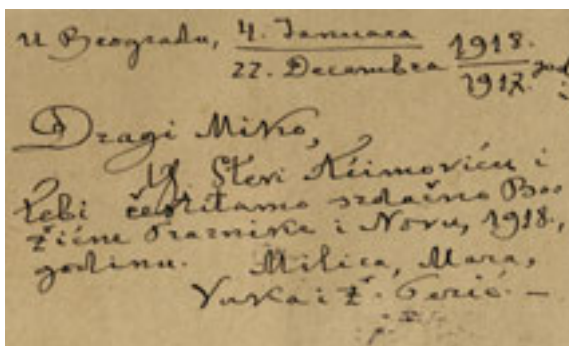 U Beogradu, 4. Januara 1918.
22. Decembra 1917. god
Dragi Miko,
Stevi Aćimoviću i
Tebi čestitamo srdačno Bo-
žićne Praznike i Novu, 1918.,
godinu. Milica, Mara,
Vuka i Ž. Perić. —